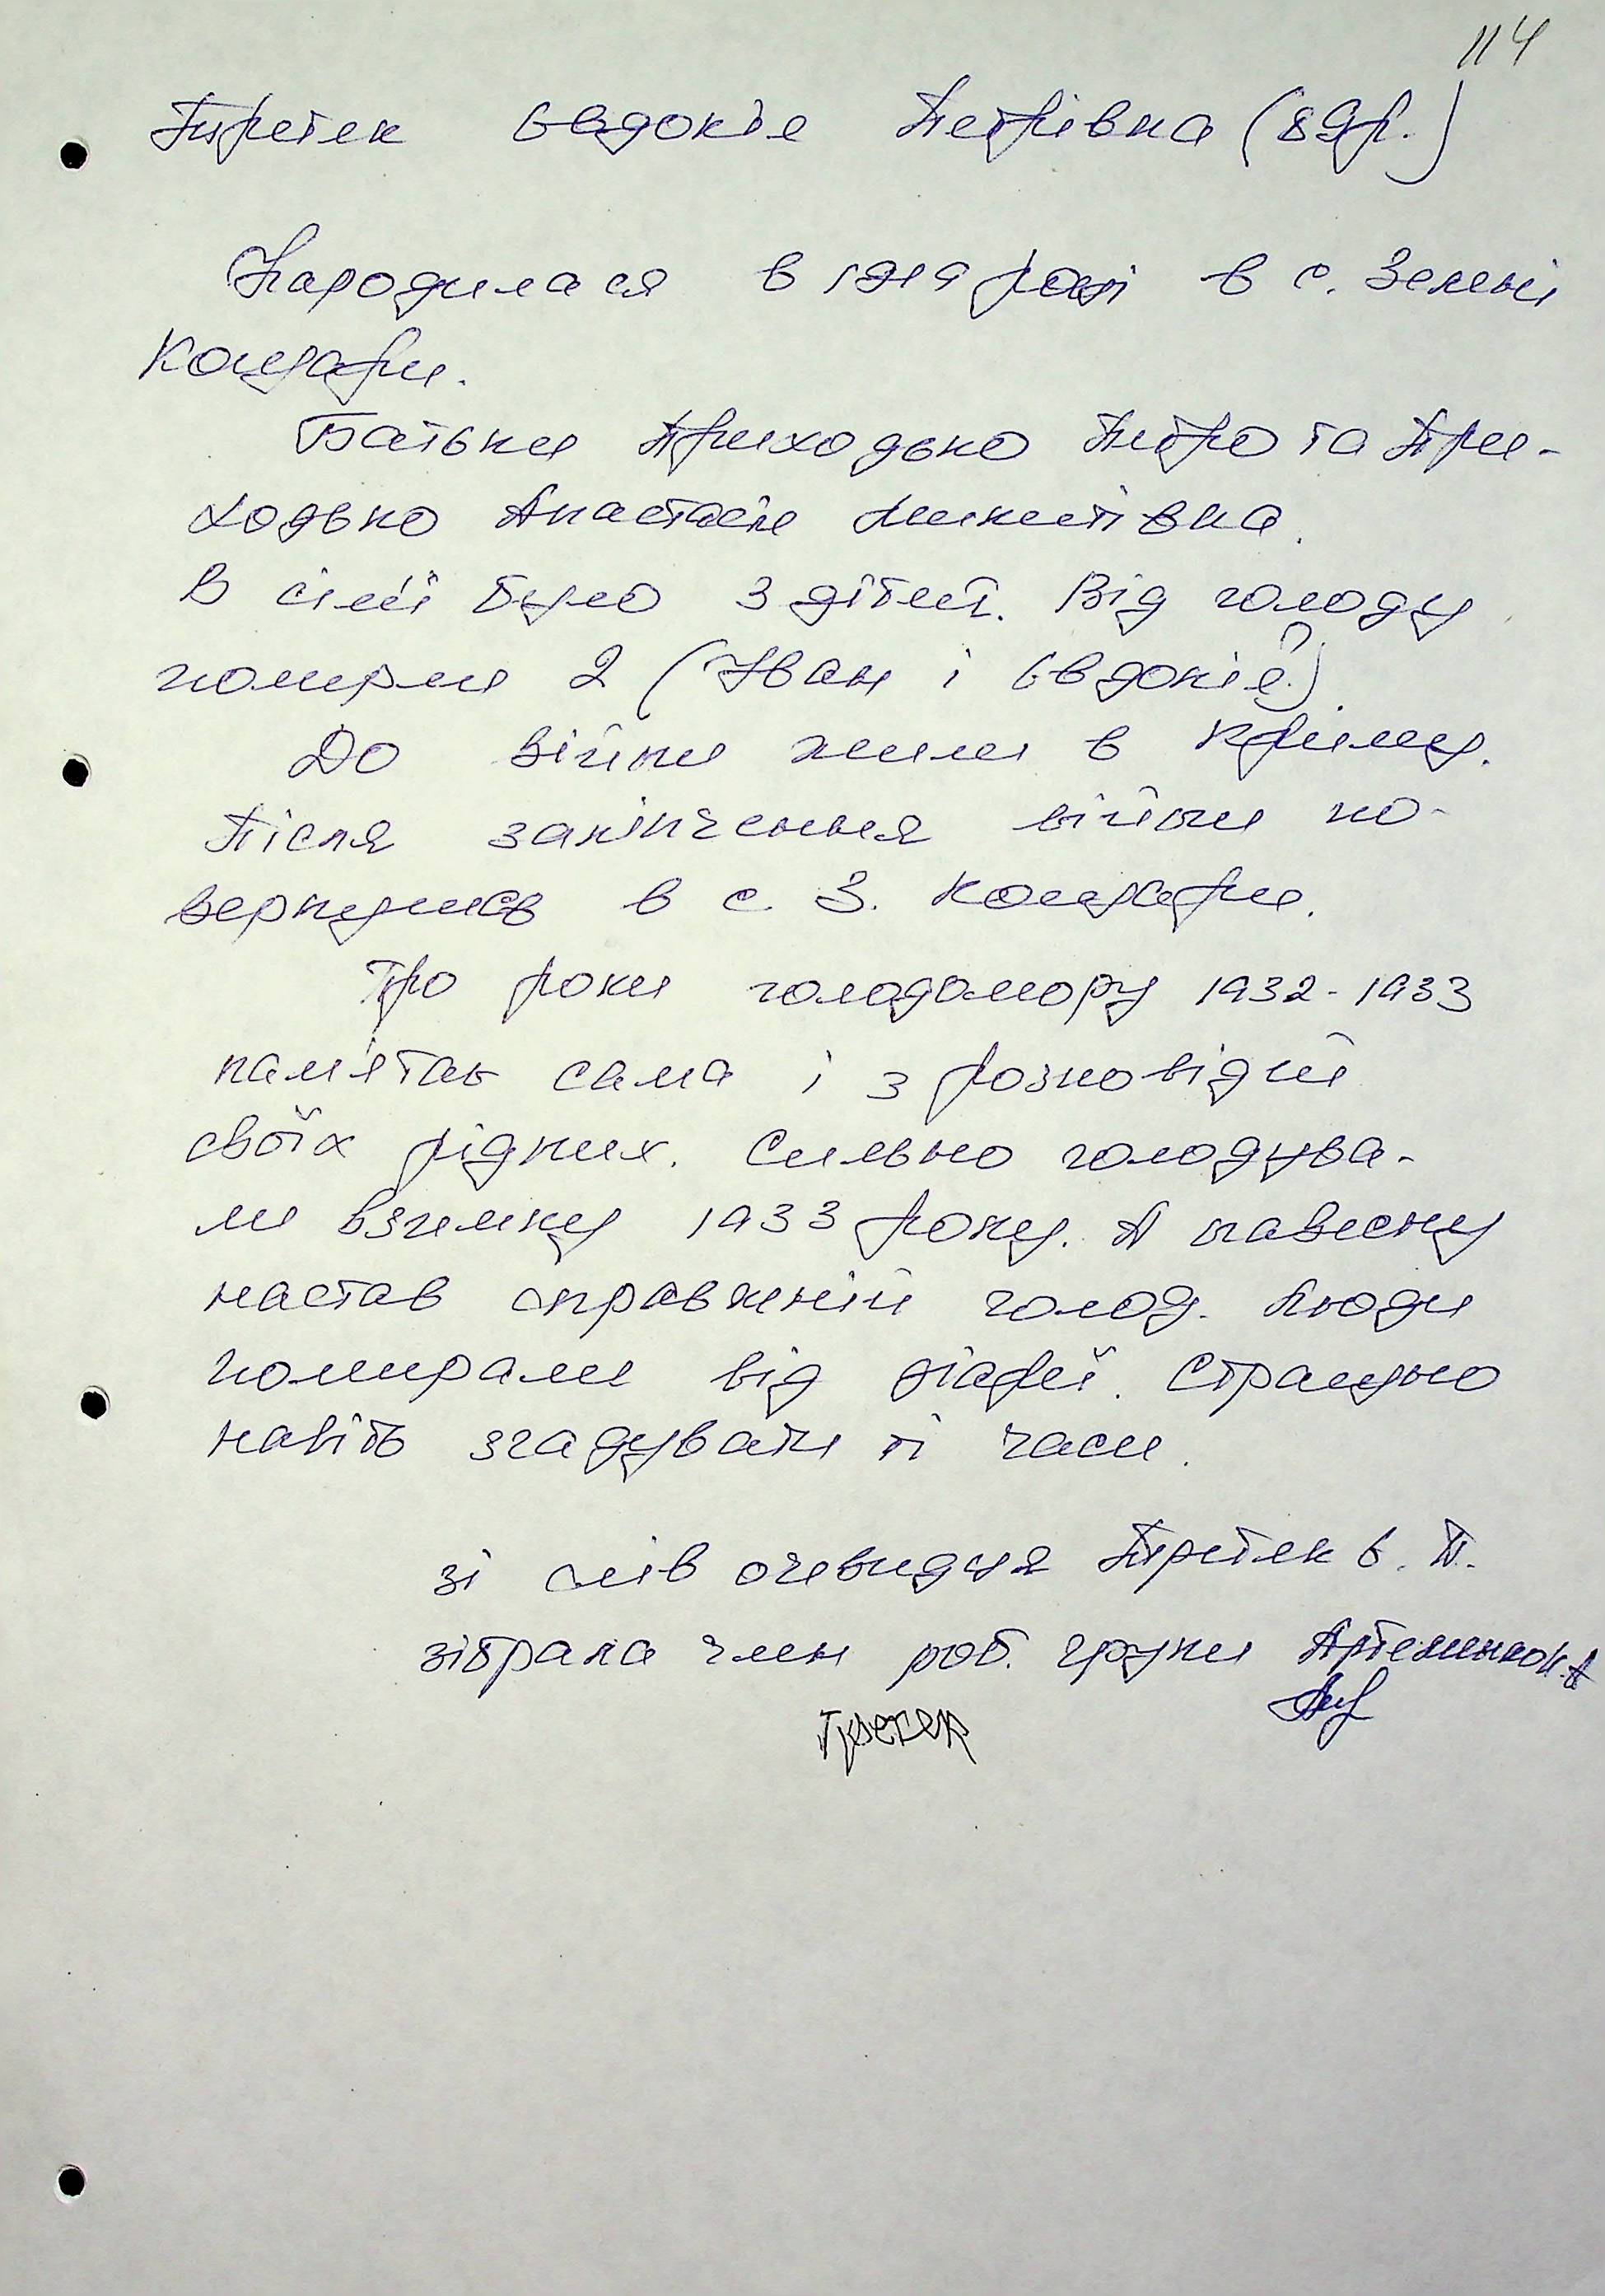 114
Третяк Євдокія Петрівна (89р.)
Народилася в 1919 році в с. Зелені
Кошари.
Батьки Приходько Петро та При-
ходько Анастасія Микитівна.
В сім'ї було 3 дітей. Від голоду
померли 2 (Іван і Євдокія?).
До війни жили в Криму.
Після закінчення війни по-
вернулись в с. З. Кошари.
Про роки голодомору 1932-1933
пам'ятає сама і з розповідей
своїх рідних. Сильно голодува-
ли взимку 1933 року. А навесну
настав справжній голод. Люди
помирали від діареї. Страшно
навіть згадувати ті часи.
зі слів очевидця Третяк Є. П.
зібрала член роб. групи Артеменко Н.А
Третяк